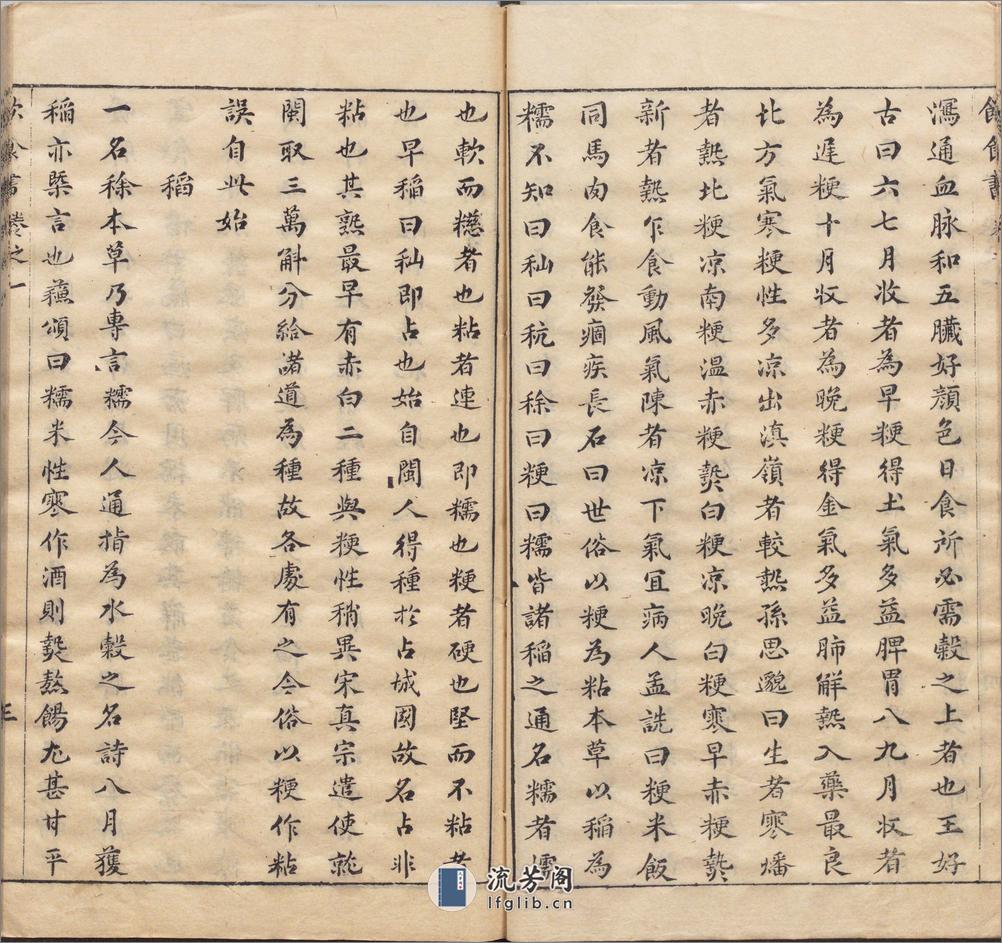 瀉通血脉和五臟好顔色日食所必需穀之上者也王好
古曰六七月收者為早粳得土氣多益脾胃八九月收者
為遲粳十月收者為晚粳得金氣多益肺解熱入藥最良
北方氣寒粳性多凉出滇嶺者較熱孫思邈曰生者寒燔
者熱北粳凉南粳温赤粳𤍠白粳凉晚白粳寒早赤粳𤍠
新者熱乍食動風氣陳者凉下氣宜病人孟詵曰粳米飯
同馬肉食能發痼疾長石曰世俗以粳為粘本草以稲為
糯不知曰秈曰秔曰稌曰粳曰糯皆諸稲之通名糯者懦
也軟而
者也粘者連也即糯也粳者硬也堅而不粘者
也早稲曰秈即占也始自閩人得種於占城國故名占非
粘也其熟最早有赤白二種與粳性稍異宋真宗遣使就
閩取三萬斛分給諸道為種故各處有之今俗以粳作粘
誤自此始
稻
一名稌本草乃專言糯今人通指為水穀之名詩八月獲
稲亦槩言也蘓頌曰糯米性寒作酒則𤍠熬餳尤甚甘平
卷之一
流芳阁
lfglib.cn